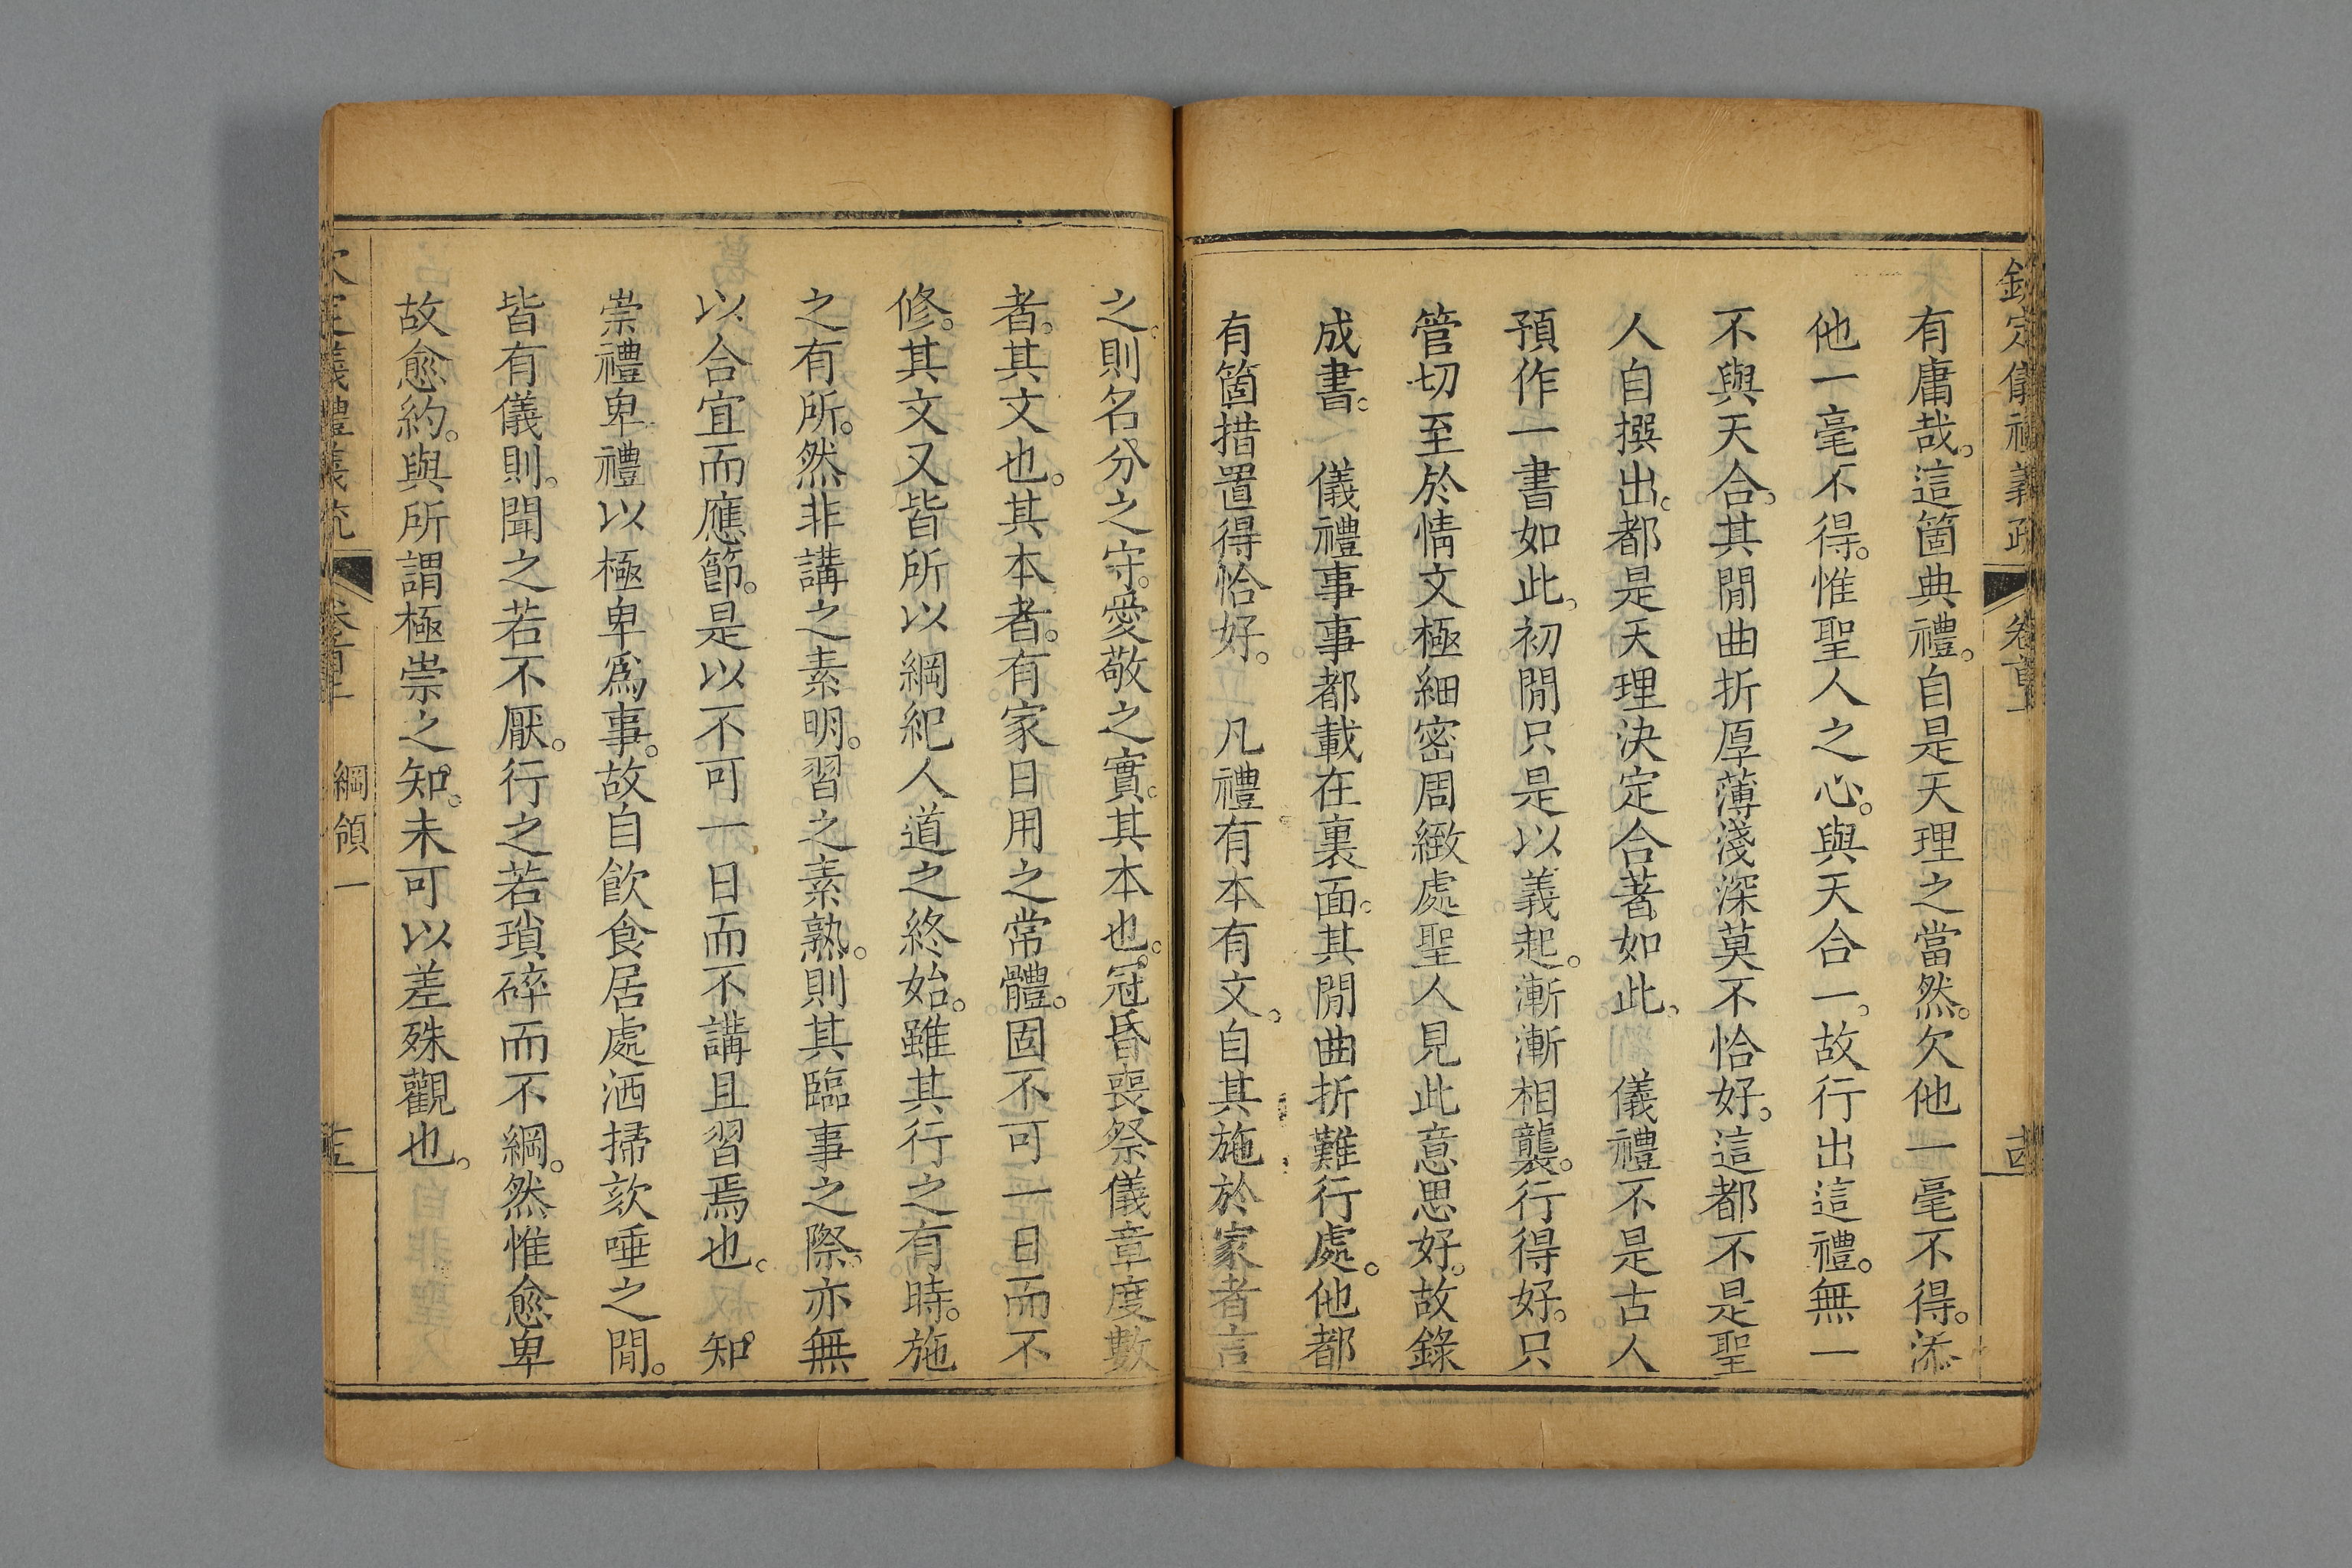 欽定儀禮義疏 卷首上 古
有庸哉。這箇典禮。自是天理之當然。欠他一毫不得。添
他一毫不得。惟聖人之心。與天合一。故行出這禮。無一
不與天合。其閒曲折厚薄淺深莫不恰好。這都不是聖
人自撰出。都是天理決定合著如此。　儀禮不是古人
預作一書如此。初閒只是以義起。漸漸相襲。行得好。只
管切至於情文極細密周緻處聖人見此意思好。故錄
成書。　儀禮事事都載在裏面。其閒曲折難行處。他都
有箇措置得恰好。　凡禮有本有文。自其施於家者言
之。則名分之守。愛敬之實。其本也。冠昏喪祭儀章度數
者。其文也。其本者。有家日用之常體。固不可一日而不
修。其文又皆所以綱紀人道之終始。雖其行之有時。施
之有所。然非講之素明。習之素熟。則其臨事之際。亦無
以合宜而應節。是以不可一日而不講且習焉也。　知
崇禮卑。禮以極卑爲事。故自飮食居處洒掃欬唾之閒。
皆有儀則。聞之若不厭。行之若瑣碎而不綱。然惟愈卑
故愈約。與所謂極崇之知。未可以差殊觀也。
定儀禮義疏 卷首上 綱領一